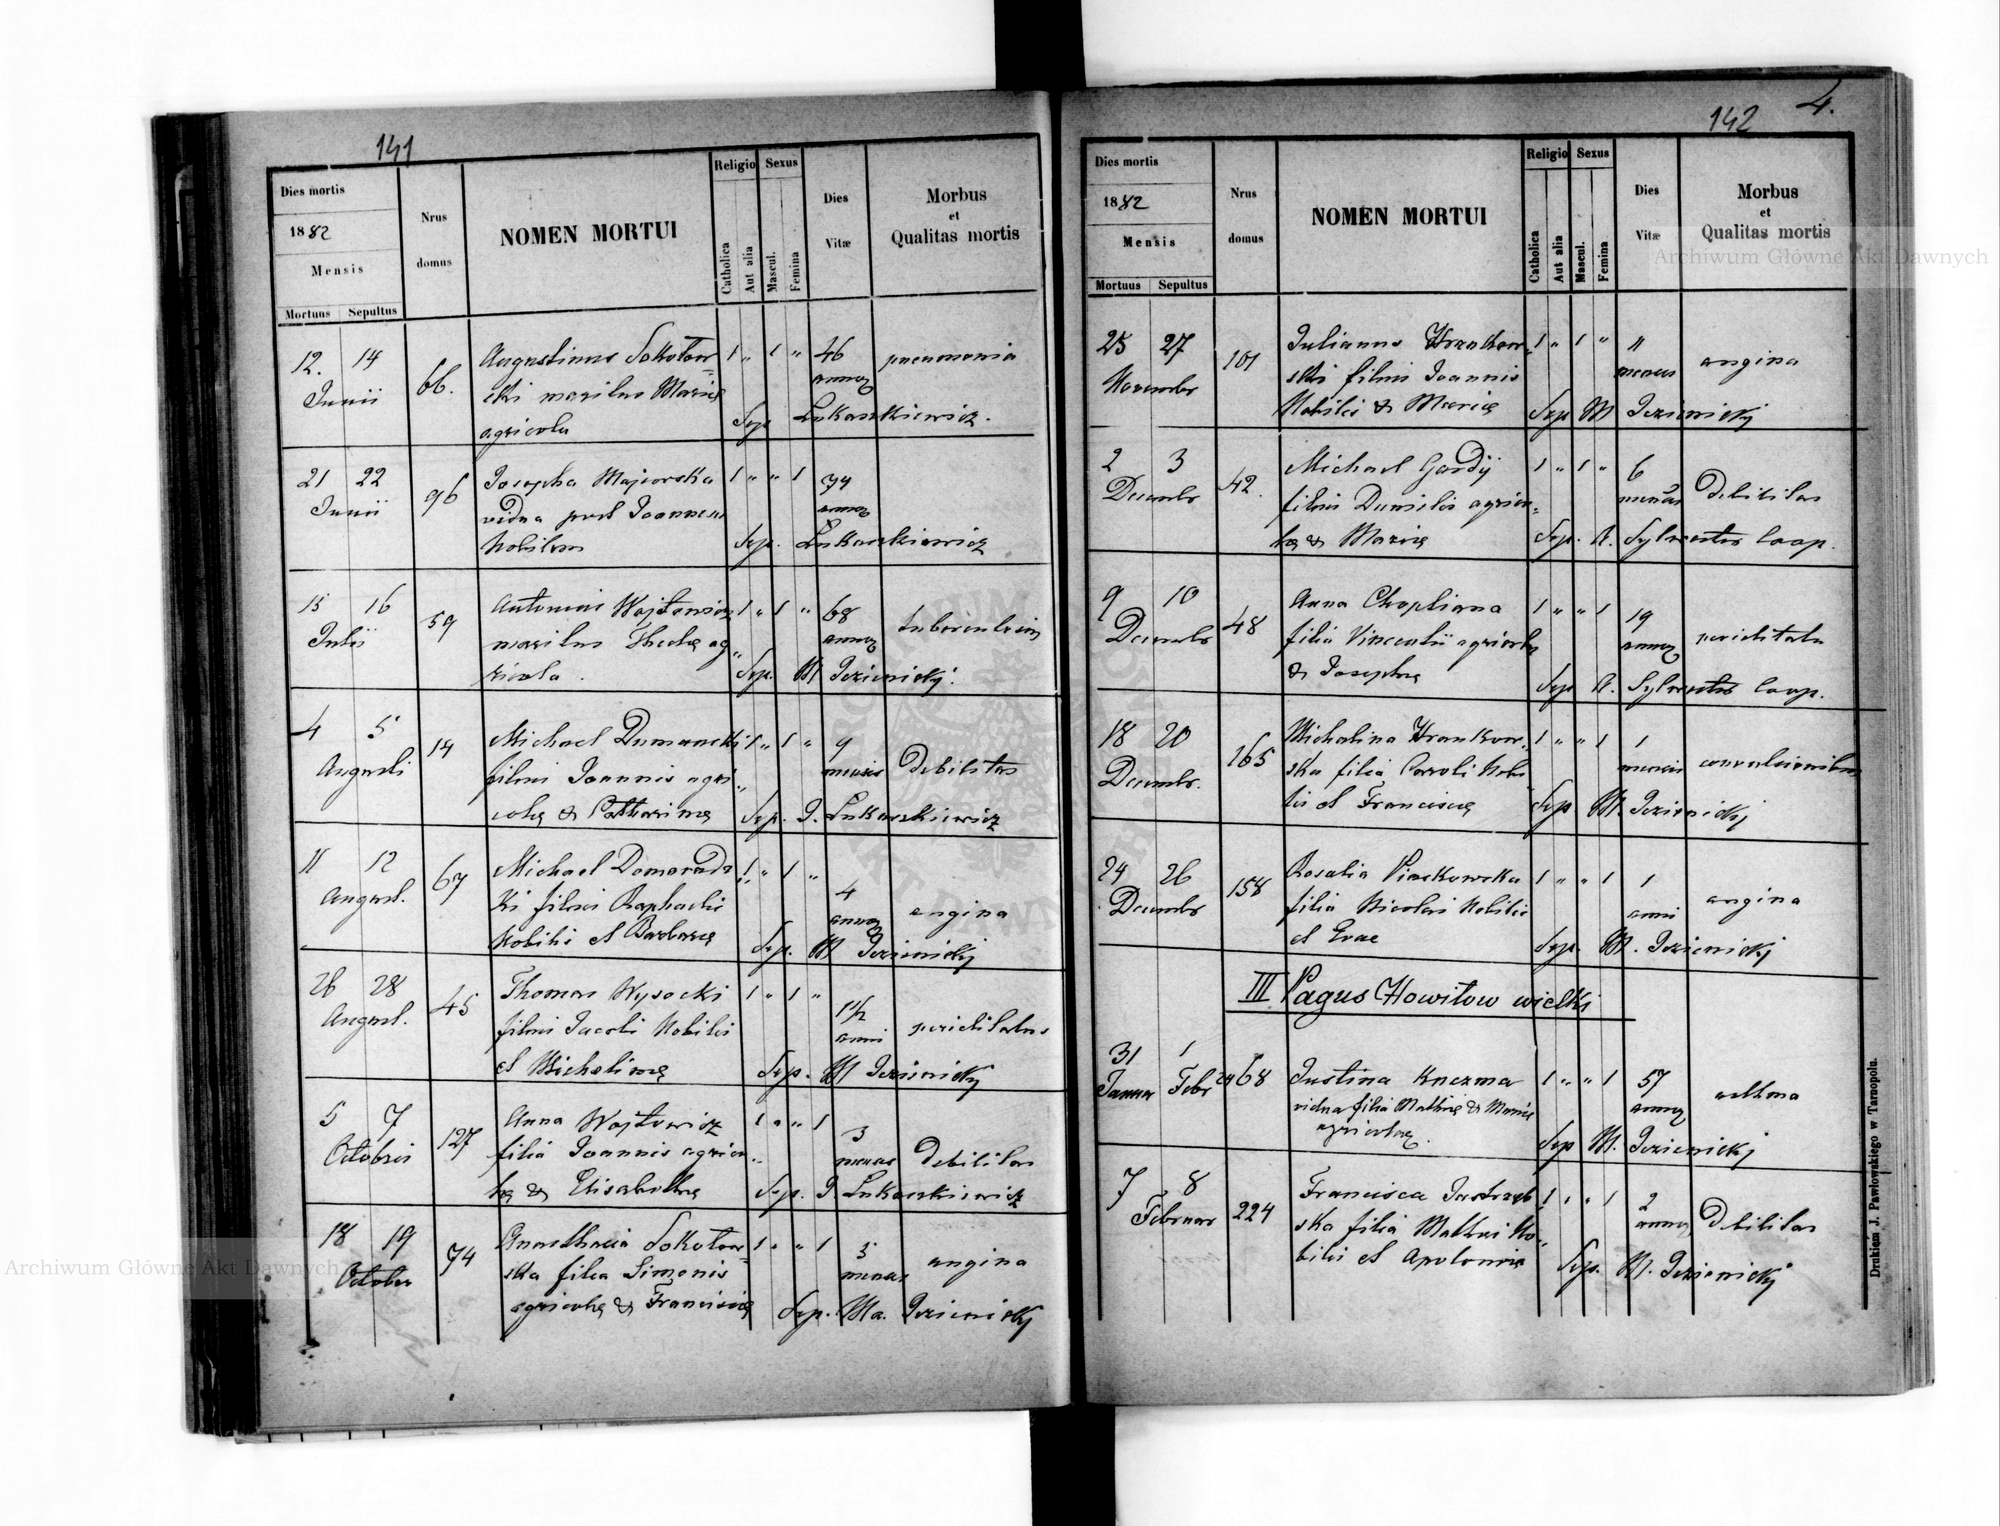 141
Dies mortis
1882
Mensis
Mortuus Sepultus
Nrus
domus
NOMEN MORTUI
Religio
Catholica
Aut alia
Sexus
Mascul.
Femina
Dies
Vitæ
Morbus
et
Qualitas mortis
12. 14
Junii
66.
Augustinus Sokołow
ski maritus Mariæ
agricola
1 " 1 "
46
annor
pneumonia
Sep. Łukaszkiewicz.
21 22
Junii
96
Josepha Majewska
vidua post Joannem
Nobilem
1 " " 1
74
annor
Sep. Łukaszkiewicz
15 16
Julii
59
Antonius Wojtowicz
maritus Theclæ ag
ricola.
1 " 1 "
68
annor
Sep. M Jezienicky.
4 5
Augusti
14
Michael Dumanski
filius Joannis agri
colæ & Catharinæ
1 " 1 "
9
mensis
Debilitas
Sep. J. Łukaszkiewicz
11 12
August.
67
Michael Domaradz
ki filius Raphaelis
Nobilis et Barbaræ
1 " 1 "
4
annor
angina
Sep. M Jezienicky
26 28
August.
45
Thomas Wysocki
filius Jacobi Nobilis
et Michalinæ
1 " 1 "
1 1/2
anni
Sep. M Jezienicky
5 7
Octobris
127
Anna Wojtowicz
filia Joannis agrico
læ & Elisabethæ
1 " " 1
3
menses
Debilitas
Sep. J Łukaszkiewicz
18 19
October
74
Anasthasia Sokołow
ska filia Simonis
agricolæ & Franciscæ
1 " " 1
3
menses
angina
Sep. Ma. Jezienicky
142
4.
Dies mortis
1882
Mensis
Mortuus Sepultus
Nrus
domus
NOMEN MORTUI
Religio
Catholica
Aut alia
Sexus
Mascul.
Femina
Dies
Vitæ
Morbus
et
Qualitas mortis
25 27
Novembr
101
Julianus
ski filius Joannis
Nobilis & Mariæ
1 " 1 "
11
menses
angina
Sep M Jezienicky
2 3
Decembr
42.
Michael
filius Danielis agrico
læ & Mariæ
1 " 1 "
6
menses
Debilitas
Sep. A. Sylvester Coop.
9 10
Decembr
48
Anna Chopliana
filia Vincentii agricolæ
& Josephæ
1 " " 1
19
annor
Sep A. Sylvester Coop.
18 20
Decembr.
165
Michalina
ska filia Caroli Nobi
lis et Franciscæ
1 " " 1
1
mensis
convulsionibus
Sep M. Jezienicky
24 26
Decembr
158
Rosalia Piaskowska
filia Nicolai Nobilis
et Evae
1 " " 1
1
anni
angina
Sep. M. Jezienicky
III Pagus Howiłow wielki
31 1
Januar Febr
68
Justina Kuczma
vidua filia Mathiæ & Mariæ
agricolæ.
1 " " 1
57
annor
asthma
Sep M. Jezienicky
7 8
Februar
224
Francisca Jastrzęb
ska filia Mathæi No
bilis et Apoloniæ
1 " " 1
2
annor
Debilitas
Sep. M. Jezienicky
Drukiem J. Pawłowskiego w Tarnopolu.
Archiwum Główne Akt Dawnych
Archiwum Główne Akt Dawnych